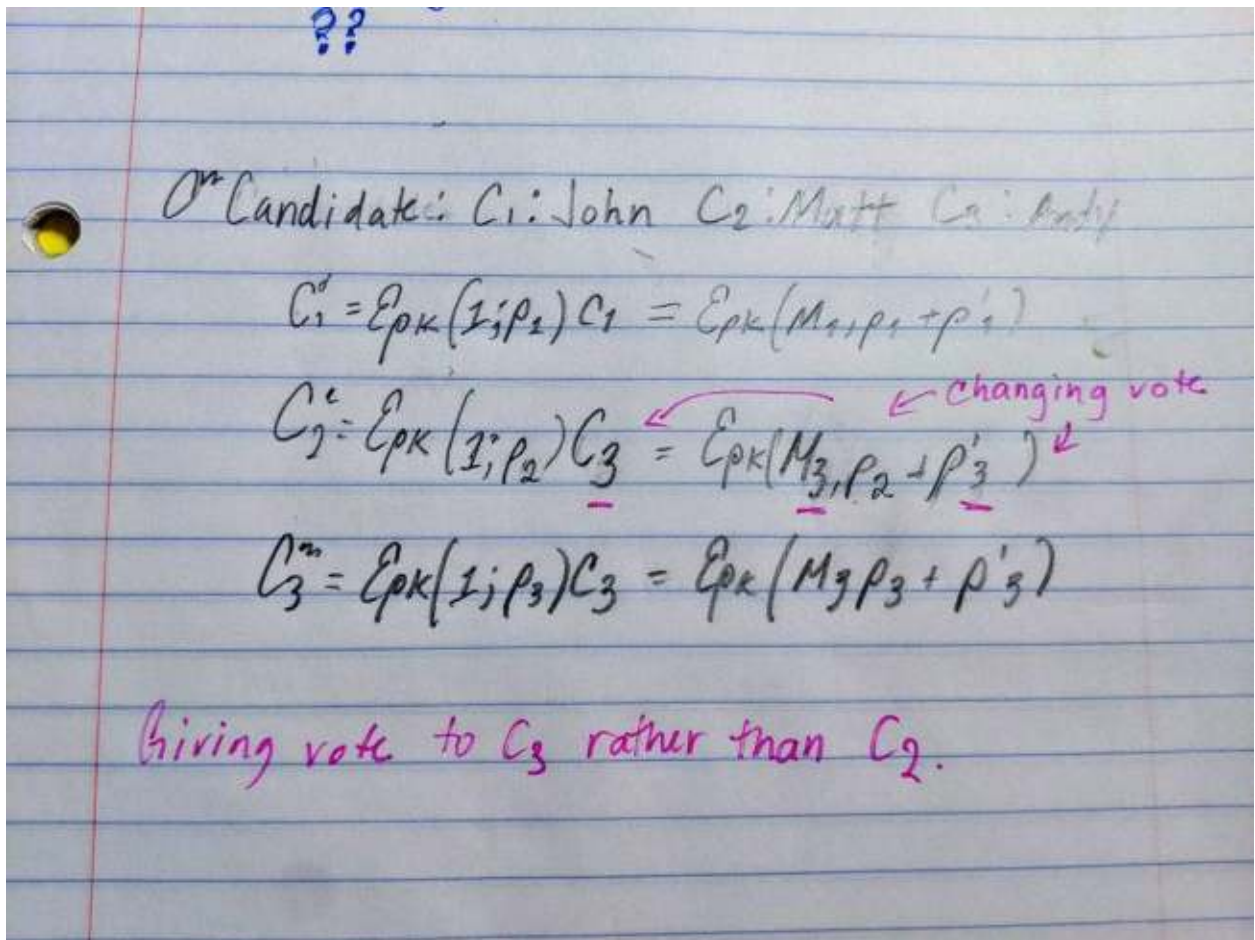 ??
Candidate: C₁: John C₂: Matt C₃: Andy
C₁' = Epk(1;ρ₁)C₁ = Epk(M₁,ρ₁+ρ'₁)
← Changing vote
C₂' = Epk(1;ρ₂)C₃ = Epk(M₃,ρ₂+ρ'₃)
C₃'' = Epk(1;ρ₃)C₃ = Epk(M₃ρ₃+ρ'₃)
Giving vote to C₃ rather than C₂.